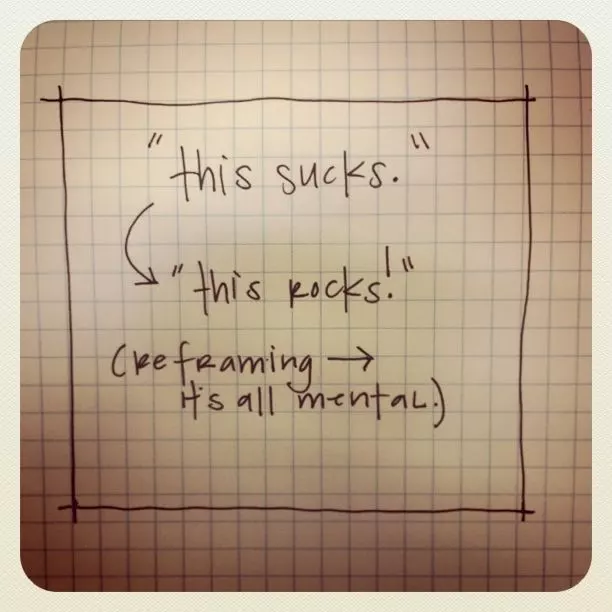 "this sucks."
"this rocks!"
(reframing →
it's all mental.)